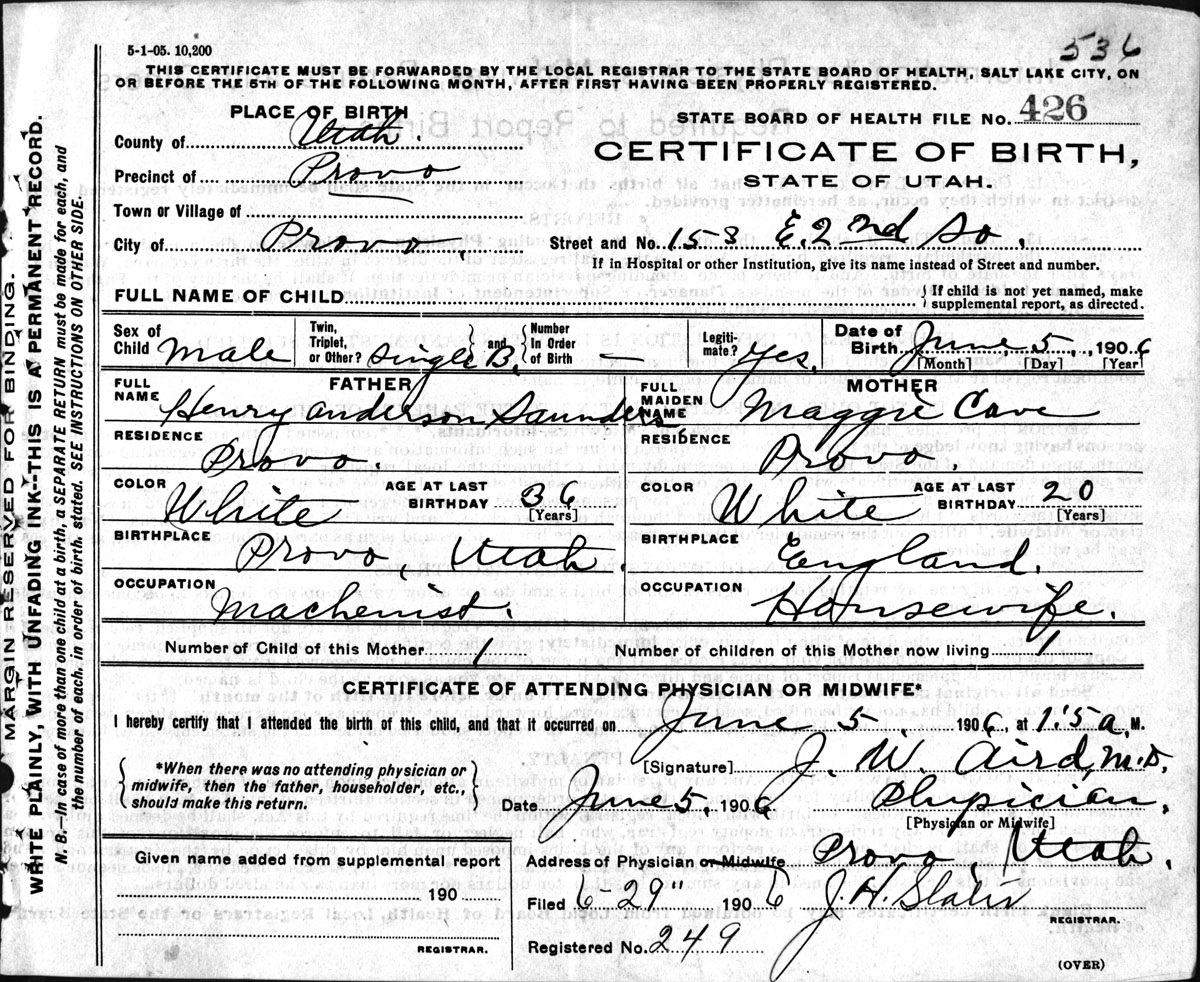 5-1-05. 10,200
536
THIS CERTIFICATE MUST BE FORWARDED BY THE LOCAL REGISTRAR TO THE STATE BOARD OF HEALTH, SALT LAKE CITY, ON
OR BEFORE THE 5TH OF THE FOLLOWING MONTH, AFTER FIRST HAVING BEEN PROPERLY REGISTERED.
PLACE OF BIRTH
STATE BOARD OF HEALTH FILE No. 426
County of Utah.
CERTIFICATE OF BIRTH,
Precinct of Provo
STATE OF UTAH.
Town or Village of
City of Provo, Street and No. 153 E. 2nd So.
If in Hospital or other Institution, give its name instead of Street and number.
FULL NAME OF CHILD
{ If child is not yet named, make
supplemental report, as directed.
Sex of Child Male
Twin, Triplet, or Other? Single B. } and { Number In Order of Birth —
Legiti-mate? Yes.
Date of Birth June 5, 1906
[Month] [Day] [Year]
FATHER
FULL NAME Henry Anderson Saunders
MOTHER
FULL MAIDEN NAME Maggie Cave
RESIDENCE Provo.
RESIDENCE Provo.
COLOR White AGE AT LAST BIRTHDAY 36 [Years]
COLOR White AGE AT LAST BIRTHDAY 20 [Years]
BIRTHPLACE Provo, Utah.
BIRTHPLACE England.
OCCUPATION Machenist.
OCCUPATION Housewife.
Number of Child of this Mother 1 Number of children of this Mother now living 1
CERTIFICATE OF ATTENDING PHYSICIAN OR MIDWIFE*
I hereby certify that I attended the birth of this child, and that it occurred on June 5 1906, at 1:5 a, M.
*When there was no attending physician or
midwife, then the father, householder, etc.,
should make this return.
[Signature] J. W. Aird, M.D.
Date June 5. 1906 Physician.
[Physician or Midwife]
Given name added from supplemental report
190
REGISTRAR.
Address of Physician or Midwife Provo, Utah.
Filed 6 29" 1906 J. H. Slater
REGISTRAR.
Registered No. 249
(OVER)
MARGIN RESERVED FOR BINDING.
WRITE PLAINLY, WITH UNFADING INK--THIS IS A PERMANENT RECORD.
N. B.—In case of more than one child at a birth, a SEPARATE RETURN must be made for each, and
the number of each, in order of birth, stated. SEE INSTRUCTIONS ON OTHER SIDE.